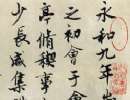 永和九年
之初會于會
亭脩稧事
少長咸集